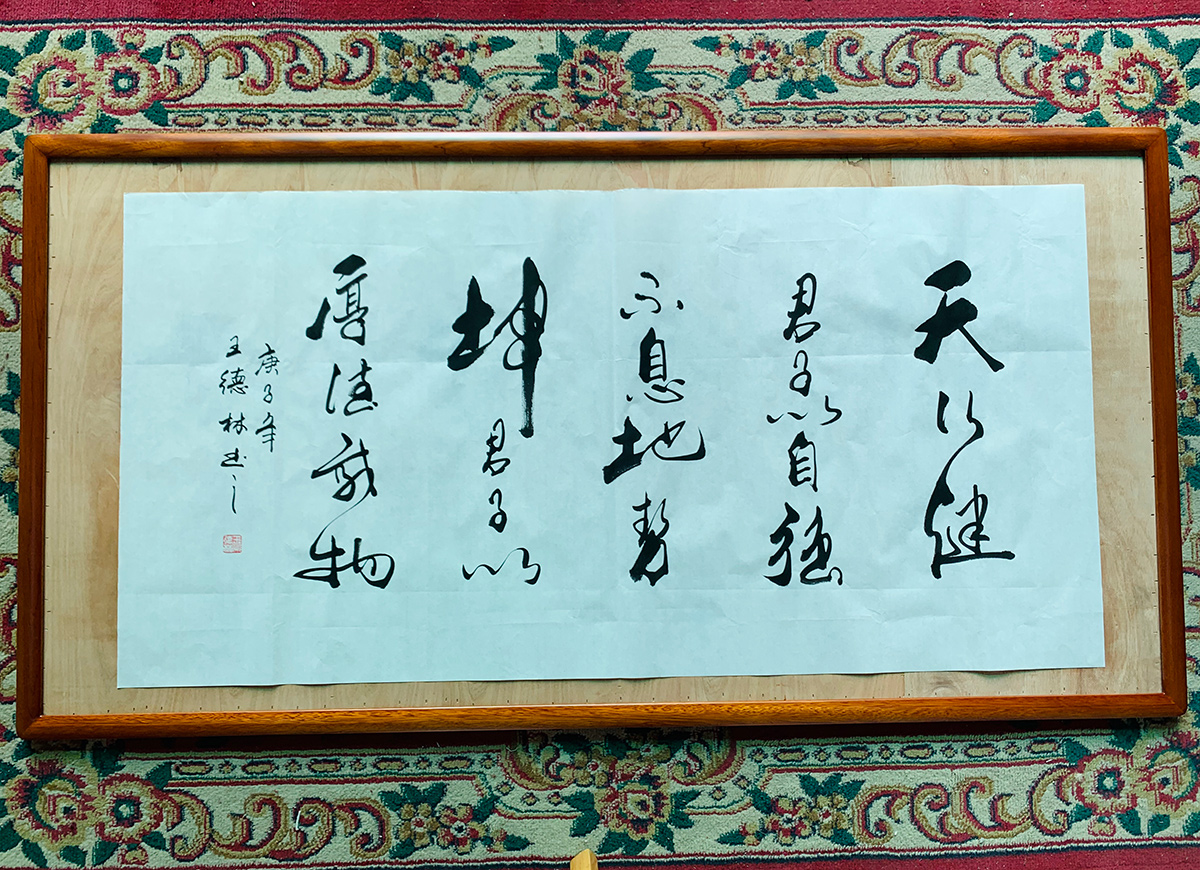 天行健
君子以自强
不息地势
坤君子以
厚德载物
庚子年
王德林书之